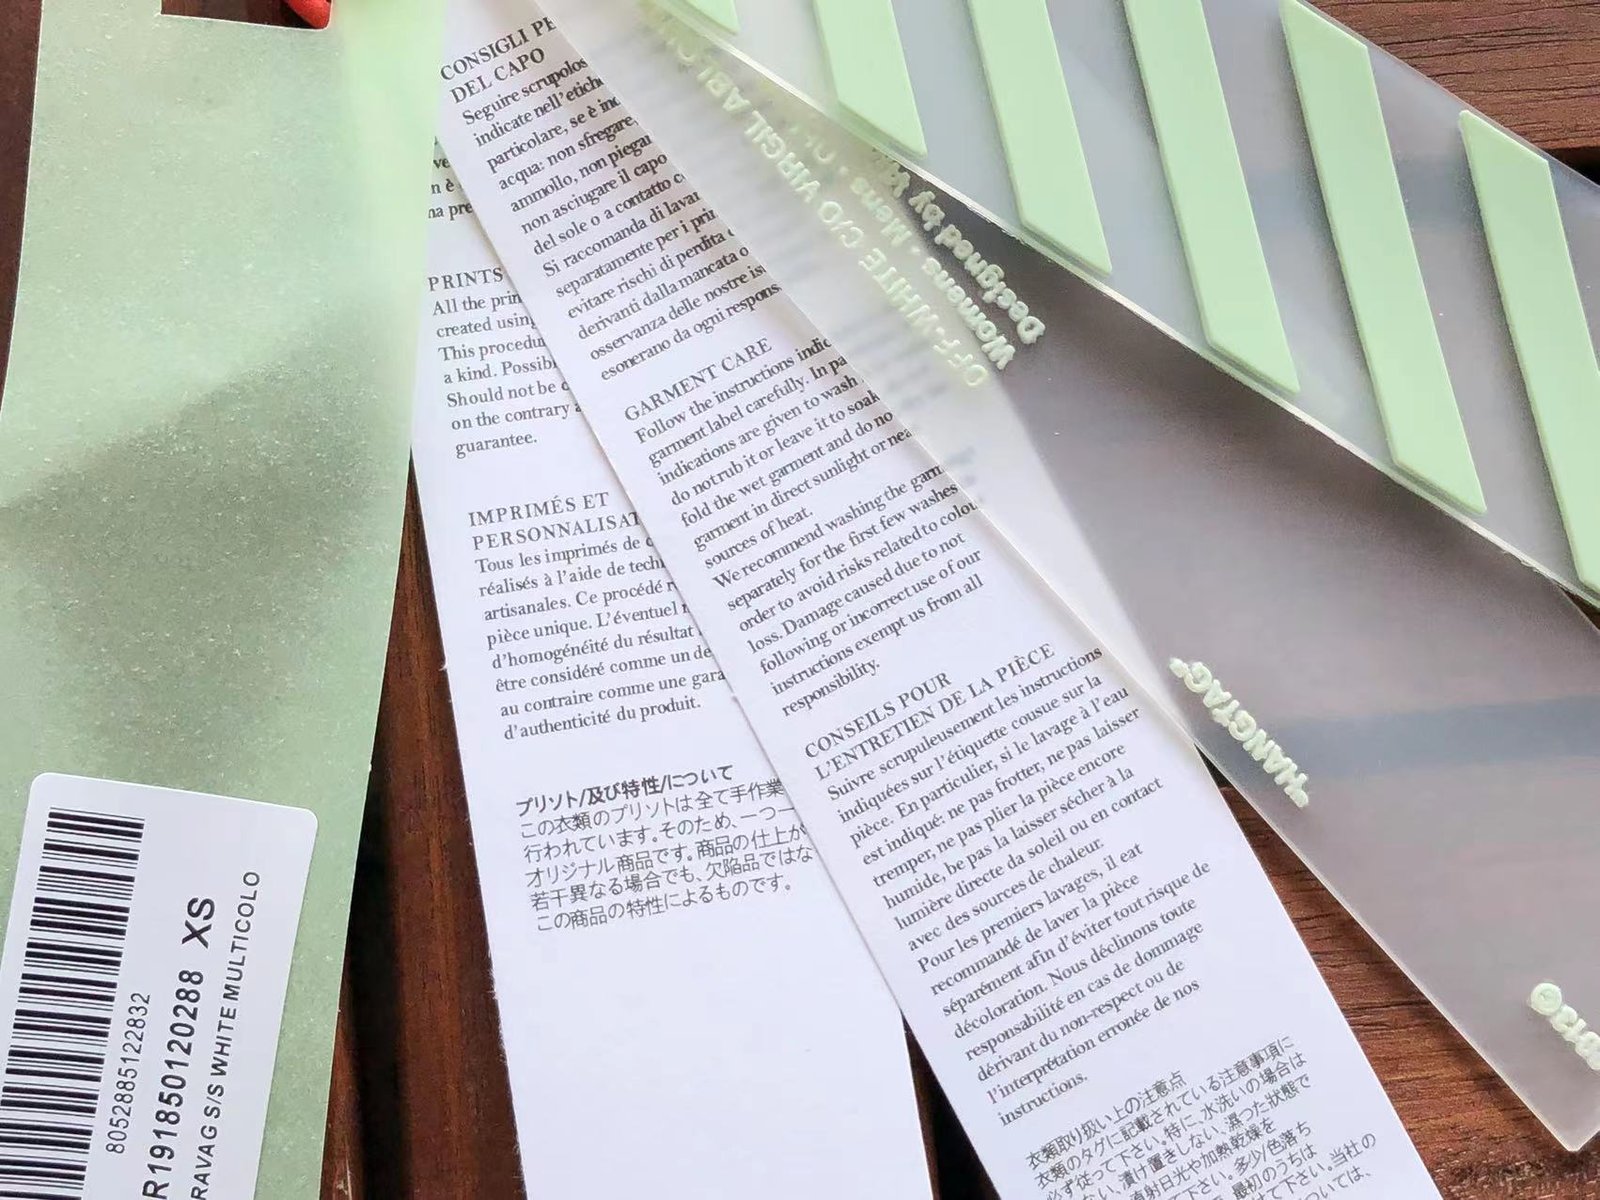 CONSIGLI PE
DEL CAPO
Seguire scrupolos
indicate nell'etiche
particolare, se è ind
acqua: non sfregare,
ammollo, non piegar
non asciugare il capo
del sole o a contatto c
Si raccomanda di lavar
separatamente per i prim
evitare rischi di perdita
derivanti dalla mancata o
osservanza delle nostre is
esonerano da ogni respons
GARMENT CARE
Follow the instructions indic
garment label carefully. In pa
indications are given to wash
do not rub it or leave it to soak
fold the wet garment and do no
garment in direct sunlight or nea
sources of heat.
We recommend washing the garm
separately for the first few washes
order to avoid risks related to colou
loss. Damage caused due to not
following or incorrect use of our
instructions exempt us from all
responsibility.
CONSEILS POUR
L'ENTRETIEN DE LA PIÈCE
Suivre scrupuleusement les instructions
indiquées sur l'étiquette cousue sur la
pièce. En particulier, si le lavage à l'eau
est indiqué: ne pas frotter, ne pas laisser
tremper, ne pas plier la pièce encore
humide, be pas la laisser sécher à la
lumière directe da soleil ou en contact
avec des sources de chaleur.
Pour les premiers lavages, il eat
recommandé de laver la pièce
séparément afin d'éviter tout risque de
décoloration. Nous déclinons toute
responsabilité en cas de dommage
dérivant du non-respect ou de
l'interprétation erronée de nos
instructions.
衣類取り扱い上の注意点
衣類のタグに記載されている注意事項に
必ず従って下さい。特に、水洗いの場合は
ない、漬け置きしない、濡った状態で
直射日光や加熱乾燥を
て下さい。多少/色落ち
最初のうちは
せて下さい。当社の
ついては、
ve
n è
na pre
PRINTS
All the prin
created using
This procedu
a kind. Possib
Should not be c
on the contrary a
guarantee.
IMPRIMÉS ET
PERSONNALISAT
Tous les imprimés de c
réalisés à l'aide de tech
artisanales. Ce procédé r
pièce unique. L'éventuel
d'homogénéité du résultat
être considéré comme un de
au contraire comme une gara
d'authenticité du produit.
プリソト/及び特性/について
この衣類のプリソトは全て手作業
行われています。そのため、一つ一
オリジナル商品です。商品の仕上が
若干異なる場合でも、欠陥品ではな
この商品の特性によるものです。
8052885122832
R191850120288 XS
RAVAG S/S WHITE MULTICOLO
OFF-WHITE C/O VIRGIL ABLO
Womens. Mens.
Designed by
"HANGTAG"
2013©